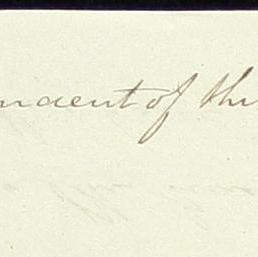 ndent of the